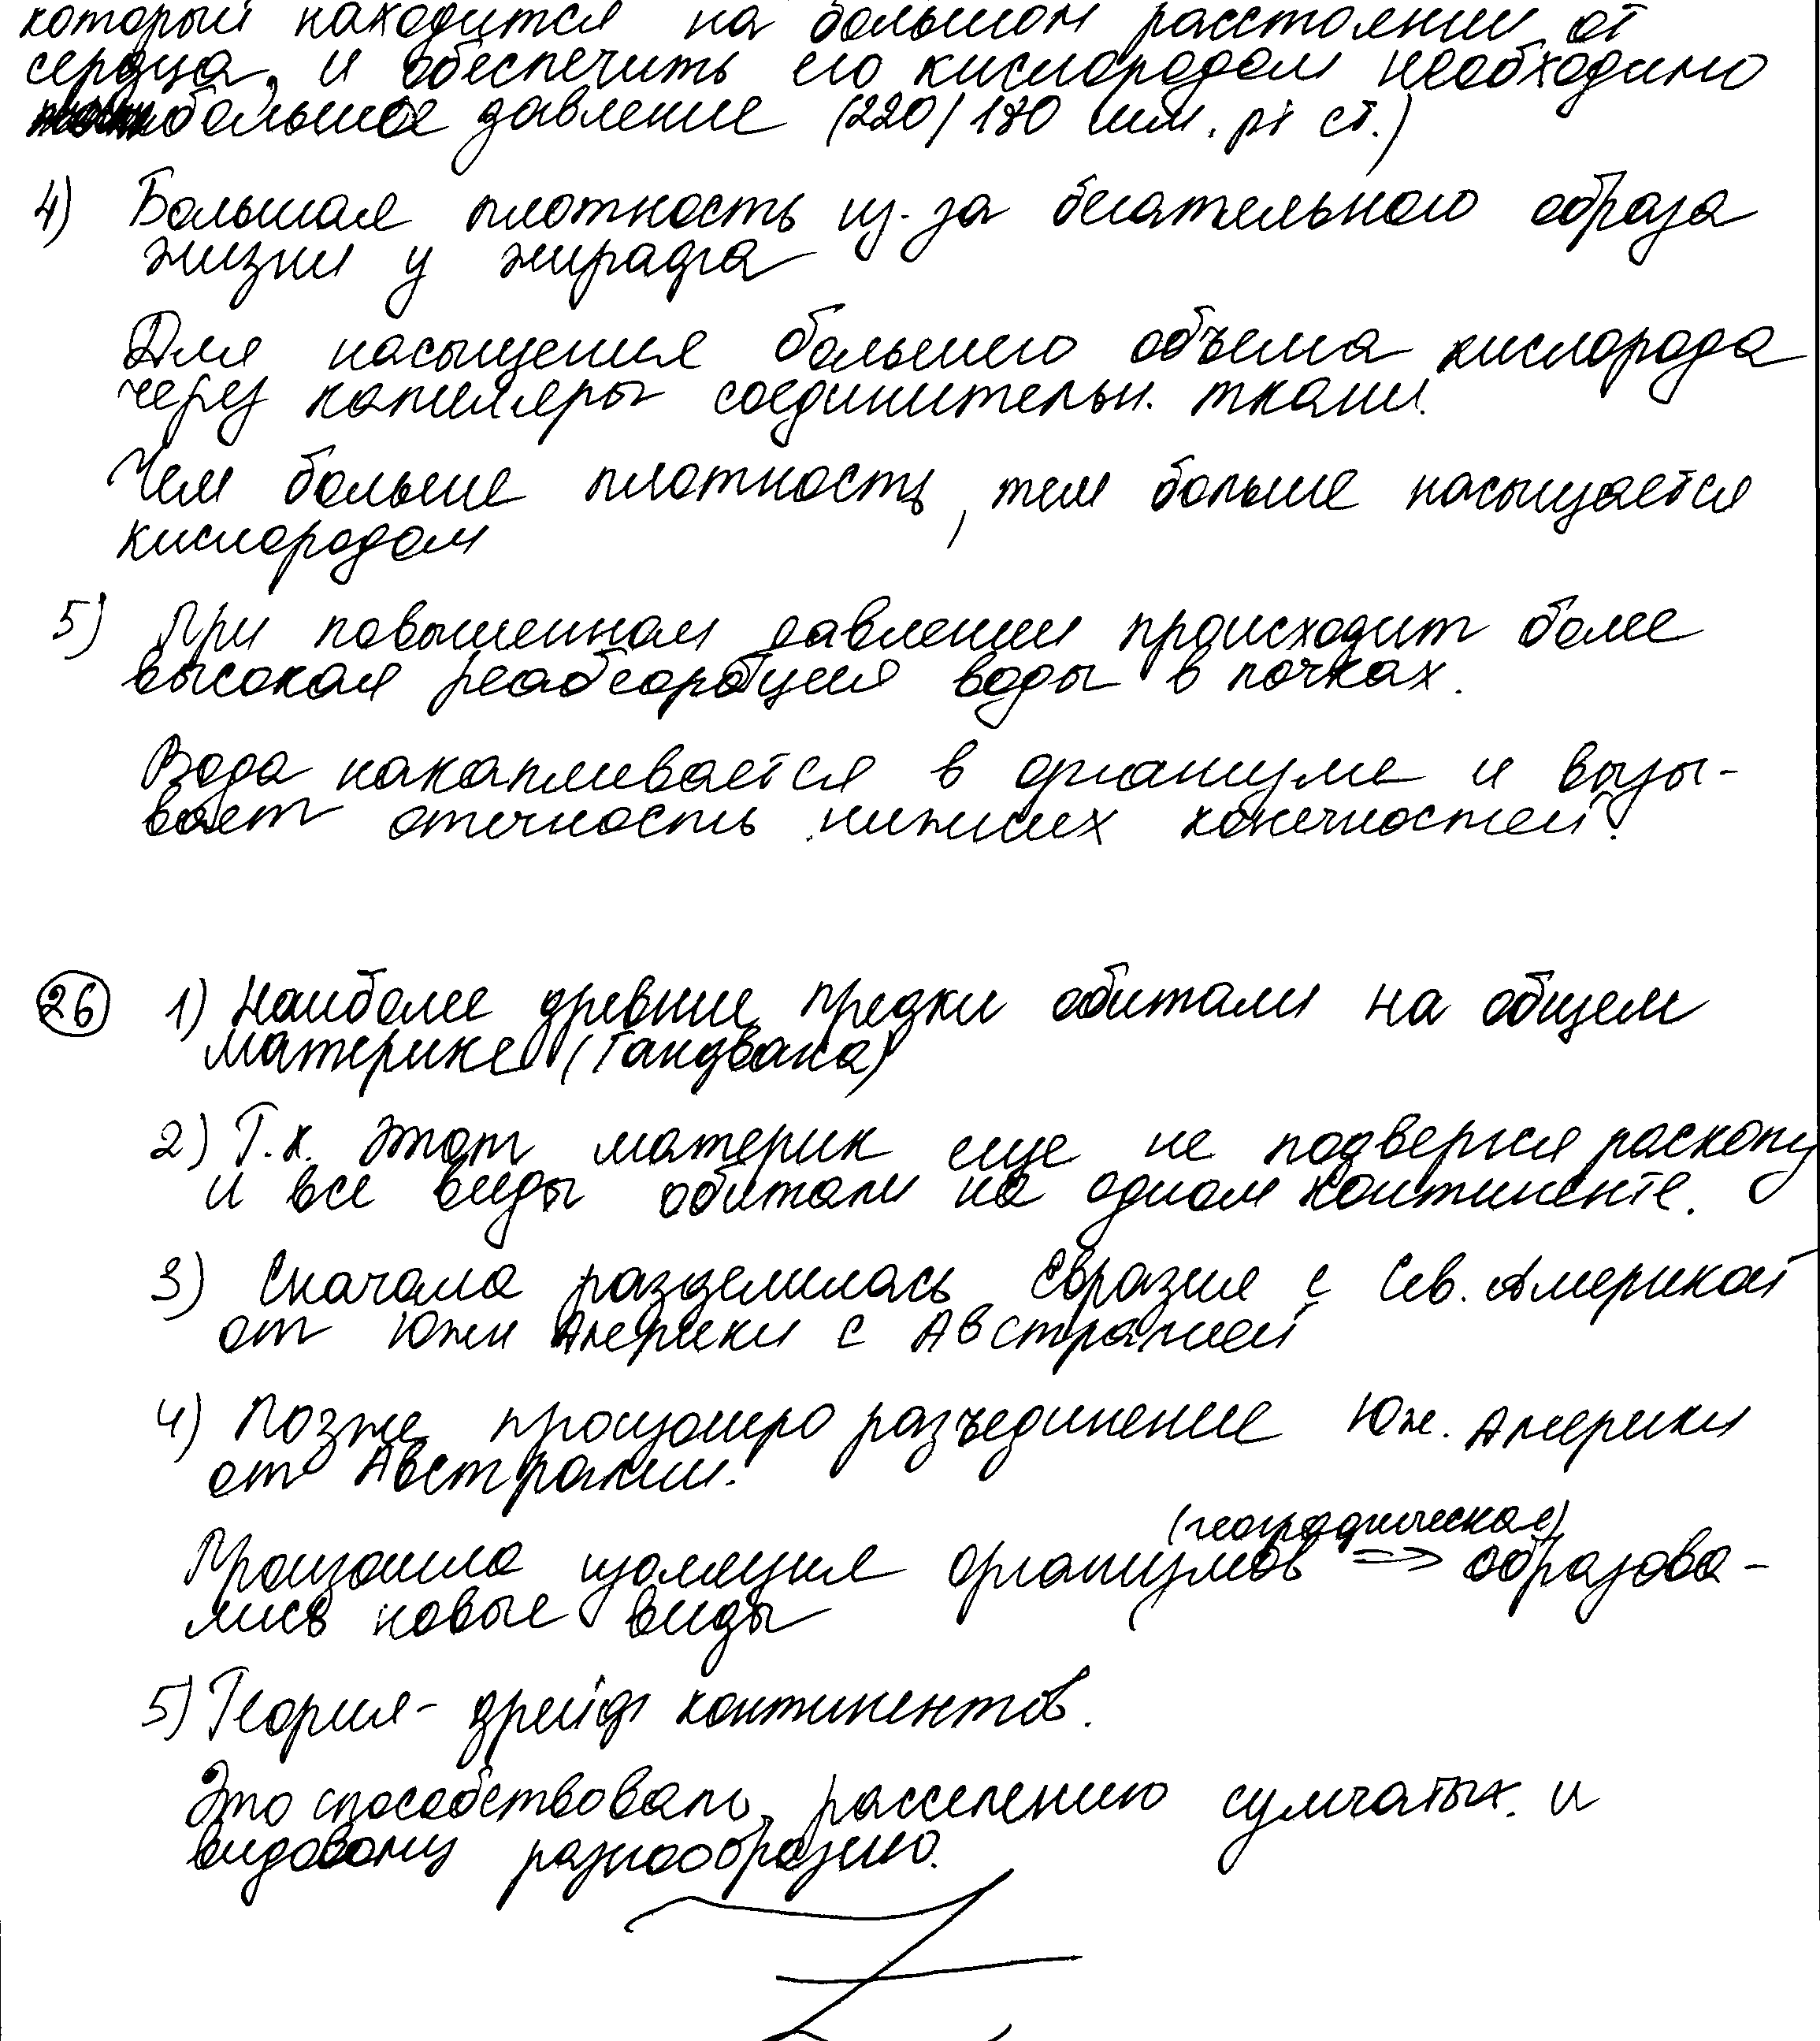 который находится на большом расстоянии от
сердца, и обеспечить его кислородом необходимо
большое давление (220/180 мм. рт ст.)
4) Большая плотность из-за бегательного образа
жизни у жирафа
Для насыщения большего объема кислорода
через капилляры соединительн. ткани.
Чем больше плотность, тем больше насыщается
кислородом
5) При повышенном давлении происходит более
высокая реабсорбция воды в почках.
Вода накапливается в организме и вызы-
вает отечность нижних конечностей.
26 1) Наиболее древние предки обитали на общем
материке (Гандвана)
2) Т.к. этот материк еще не подвергся расколу
и все виды обитали на одном континенте.
3) Сначала разделилась Евразия с Сев. Америкой
от Южн Америки с Австралией
4) Позже произошло разъединение Юж. Америки
от Австралии.
(географическая)
Произошла изоляция организмов => образова-
лись новые виды
5) Теория - дрейф континентов.
Это способствовало расселению сумчатых и
видовому разнообразию.